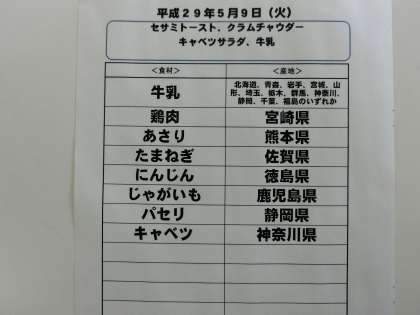 平成29年5月9日(火)
セサミトースト、クラムチャウダー
キャベツサラダ、牛乳
<食材> <産地>
牛乳 北海道、青森、岩手、宮城、山
形、埼玉、栃木、群馬、神奈川、
静岡、千葉、福島のいずれか
鶏肉 宮崎県
あさり 熊本県
たまねぎ 佐賀県
にんじん 徳島県
じゃがいも 鹿児島県
パセリ 静岡県
キャベツ 神奈川県